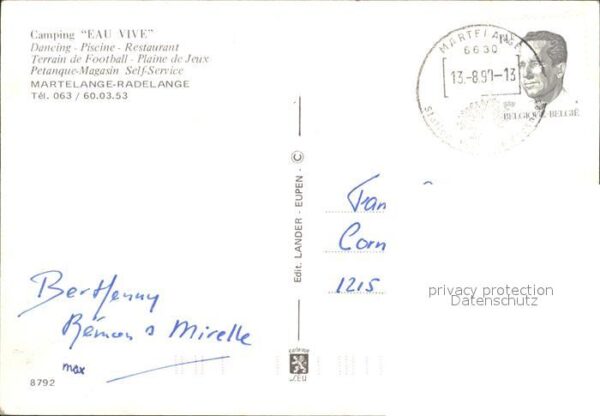 Camping "EAU VIVE"
Dancing - Piscine - Restaurant
Terrain de Football - Plaine de Jeux
Petanque-Magasin Self-Service
MARTELANGE-RADELANGE
Tél. 063 / 60.03.53
MARTELANGE
6630
13.-8.90-13
BELGIQUE-BELGIË
Edit. LANDER - EUPEN - ©
Fan
Corn
1215
privacy protection
Datenschutz
Bert Jenny
Rémon & Mirelle
max
8792